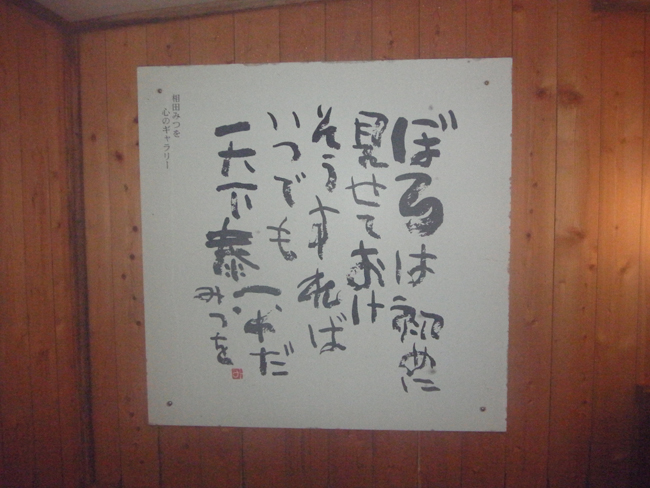 ぼろは初めに
見せておけ
そうすれば
いつでも
天下泰平だ
みつを
相田みつを
心のギャラリー